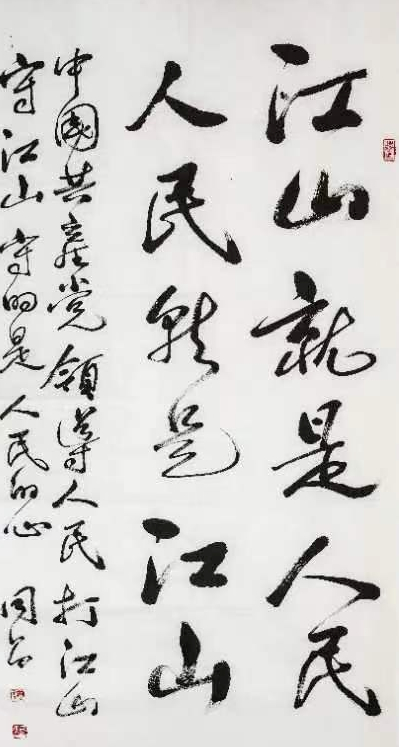 江山就是人民
人民就是江山
中國共产党領导人民打江山
守江山守的是人民的心